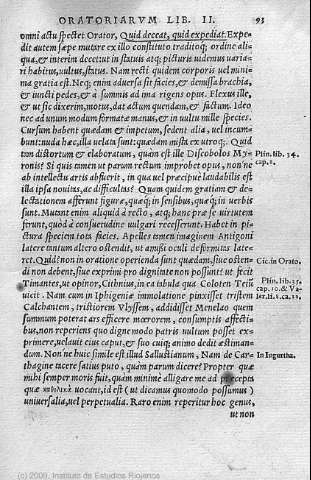 ORATORIARVM LIB. II. 93
omni actu spectet Orator, Quid deceat, quid expediat. Expe
dit autem sæpe mutare ex illo constituto traditoq; ordine ali
qua, & interim decet: ut in statuis atq; picturis uidemus uari-
ari habitus, uultus, status. Nam recti quidem corporis uel mini
ma gratia est. Neq; enim aduersa sit facies, & demissa brachia,
& iuncti pedes, & à summis ad ima rigens opus. Flexus ille,
& ut sic dixerim, motus, dat actum quendam, & factum. Ideo
nec ad unum modum formatæ manus, & in uultu mille species.
Cursum habent quædam & impetum, sedent alia, uel incum
bunt: nuda hæc, illa uelata sunt: quædam mista ex utroq;. Quid
tàm distortum & elaboratum, quàm est ille Discobolos My-
ronis? Si quis tamen ut parum rectum improbet opus, non'ne
ab intellectu artis abfuerit, in qua uel præcipuè laudabilis est
illa ipsa nouitas, ac difficultas? Quam quidem gratiam & de-
lectationem afferunt figuræ, quæq; in sensibus, quæq; in uerbis
sunt. Mutant enim aliquid à recto, atq; hanc præ se uirtutem
ferunt, quòd à consuetudine uulgari recesserunt. Habet in pi-
ctura speciem tota facies. Apelles tamen imaginem Antigoni
latere tantum altero ostendit, ut amissi oculi deformitas late
ret. Quid? non in oratione operienda sunt quædam, siue osten-
di non debent, siue exprimi pro dignitate non possunt? ut fecit
Timantes, ut opinor, Cithnius, in ea tabula qua Coloten Teiũ
uicit. Nam cum in Iphigeniæ immolatione pinxisset tristem
Calchantem, tristiorem Vlyssem, addidisset Menelao quem
summum poterat ars efficere mœrorem, consumptis affecti-
bus, non reperiens quo digne modo patris uultum posset ex-
primere, uelauit eius caput, & suo cuiq; animo dedit æstiman-
dum. Non'ne huic simile est illud Sallustianum, Nam de Car-
thagine tacere satius puto, quàm parum dicere? Propter quæ
mihi semper moris fuit, quàm minimè alligare me ad præcepta
quæ καθολικὰ uocant, id est (ut dicamus quomodo possumus)
uniuersalia, uel perpetualia. Raro enim reperitur hoc genus,
ut non
Plin. lib. 34.
cap. 8.
Cic. in Orato.
Plin. lib. 35.
cap. 10. & Va-
ler. li. 8. ca. 11.
In Iugurtha.
(c) 2009, Instituto de Estudios Riojanos